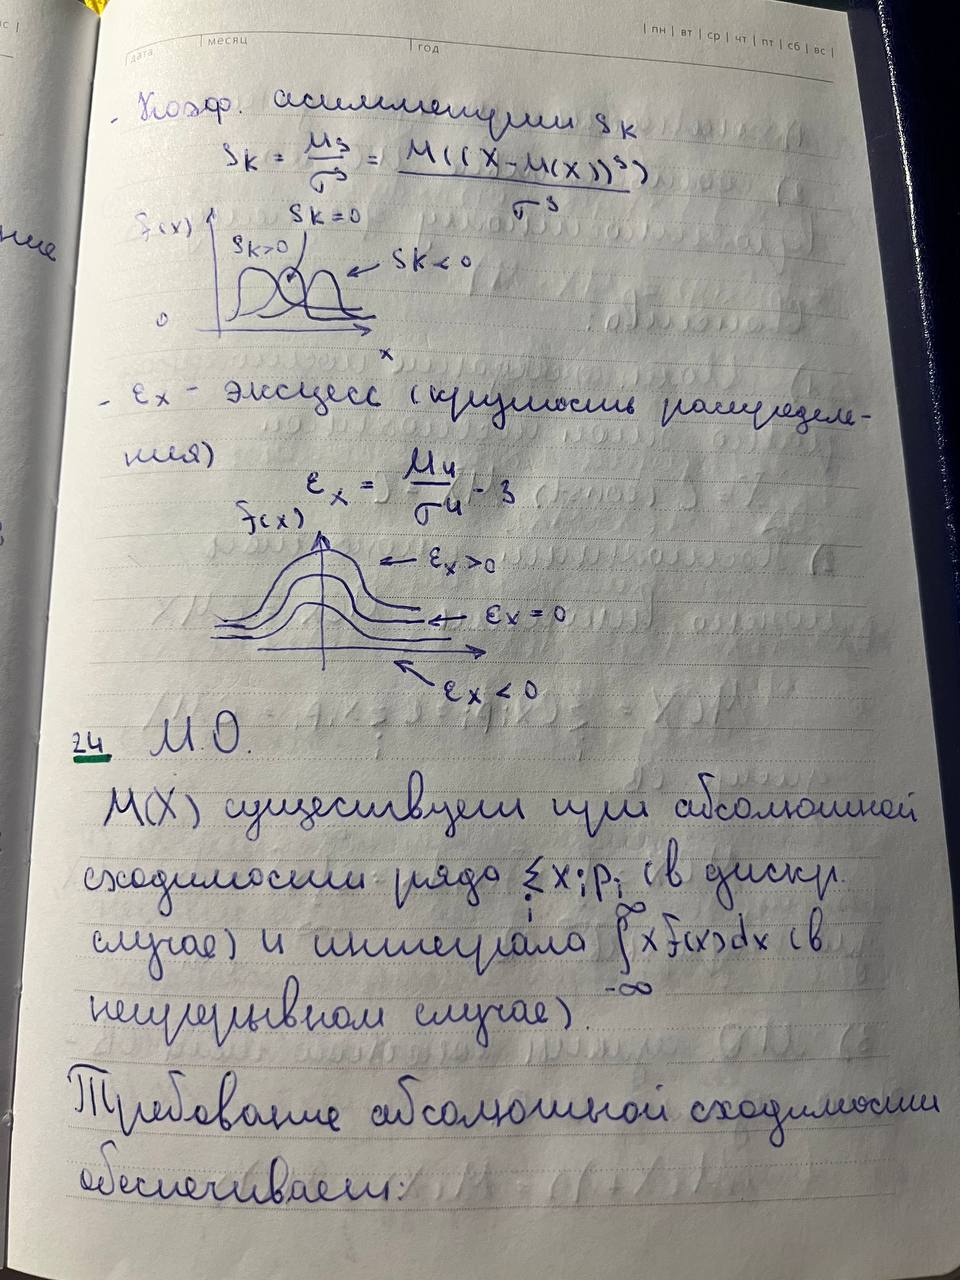 дата | месяц | год | пн | вт | ср | чт | пт | сб | вс |
- Коэф. асимметрии Sk
Sk = μ3/σ³ = M((X-M(X))³)/σ³
f(x)
Sk=0
Sk>0
Sk<0
0
x
- εx - эксцесс (крутость распределе-
ния)
εx = μ4/σ⁴ - 3
f(x)
εx>0
εx=0
εx<0
24 М.О.
M(X) существует при абсолютной
сходимости ряда Σxipi (в дискр.
i
случае) и интеграла ∫xf(x)dx (в
∞
-∞
непрерывном случае).
Требование абсолютной сходимости
обеспечивает: